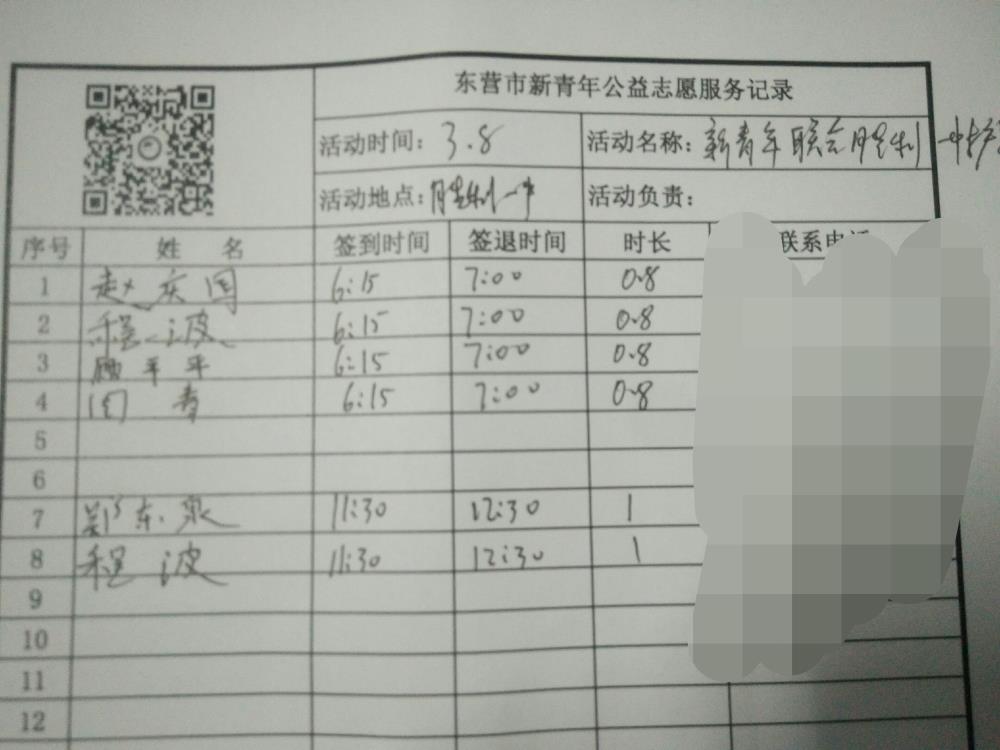 东营市新青年公益志愿服务记录
活动时间: 3.8 活动名称: 新青年联合胜利一中护
活动地点: 胜利一中 活动负责:
序号 姓名 签到时间 签退时间 时长 联系电话
1 赵庆国 6:15 7:00 0.8
2 程波 6:15 7:00 0.8
3 顾平平 6:15 7:00 0.8
4 闫青 6:15 7:00 0.8
5
6
7 郑东泉 11:30 12:30 1
8 程波 11:30 12:30 1
9
10
11
12